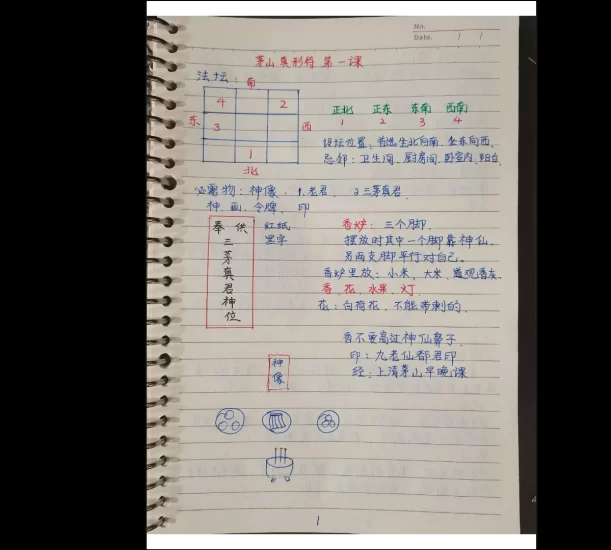 No.
Date. / /
茅山真形符 第一课
法坛: 南
4 2
东 3 西
1
北
正北 正东 东南 西南
1 2 3 4
设坛位置,首选坐北向南,坐东向西,
忌邻:卫生间,厨房间,卧室内,阳台
必需物:神像,1.老君, 2.三茅真君
神、画、令牌、印
奉供三茅真君神位
红纸
黑字
香炉:三个脚.
摆放时其中一个脚靠神仙.
另两支脚平行对自己.
香炉里放:小米、大米、道观香灰、
香、花、水果、灯
花:白荷花、不能带刺的.
香不要高过神仙鼻子.
印:九老仙都君印
经:上清茅山早晚课
神像
1